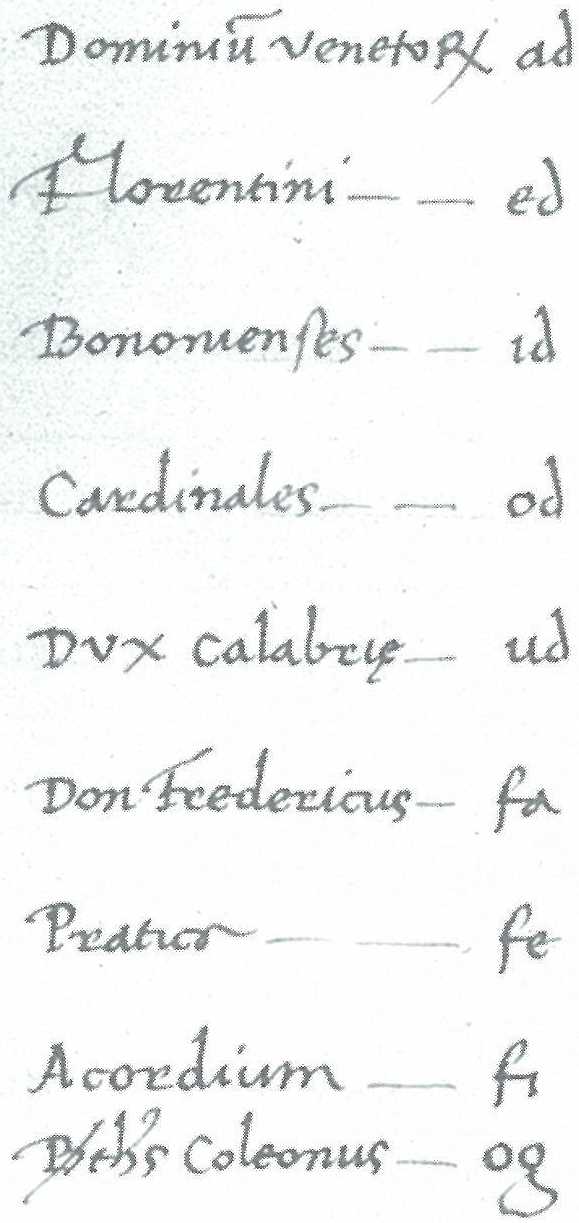 Dominiū venetoꝝ ad
Florentini — — ed
Bononienſes — — id
Cardinales — — od
Dvx Calabrię — ud
Don Fredericus — fa
fe
Acordium — fi
Coleonus — og